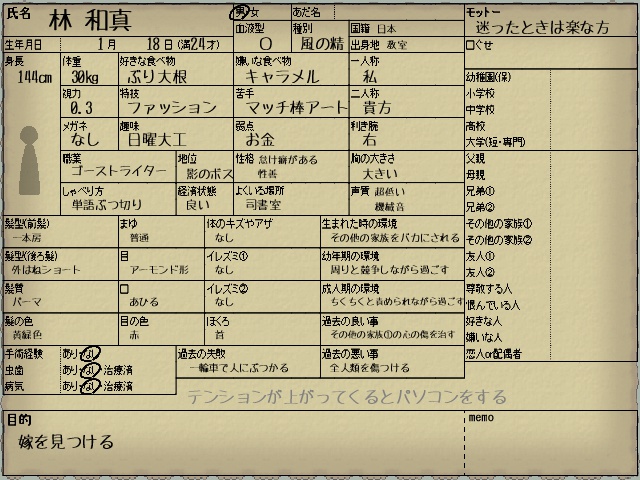 氏名 林 和真
男・女 あだ名
モットー
迷ったときは楽な方
血液型 O
種別 風の精
国籍 日本
出身地 教室
生年月日 1月 18日(満24才)
口ぐせ
身長 144cm
体重 30kg
好きな食べ物 ぶり大根
嫌いな食べ物 キャラメル
一人称 私
視力 0.3
特技 ファッション
苦手 マッチ棒アート
二人称 貴方
メガネ なし
趣味 日曜大工
弱点 お金
利き腕 右
職業 ゴーストライター
地位 影のボス
性格 怠け癖がある
性善
胸の大きさ 大きい
しゃべり方 単語ぶつ切り
経済状態 良い
よくいる場所 司書室
声質 超低い
機械音
幼稚園(保)
小学校
中学校
高校
大学(短・専門)
父親
母親
兄弟①
兄弟②
その他の家族①
その他の家族②
友人①
友人②
尊敬する人
恨んでいる人
好きな人
嫌いな人
恋人or配偶者
髪型(前髪) 一本房
まゆ 普通
体のキズやアザ なし
生まれた時の環境 その他の家族をバカにされる
髪型(後ろ髪) 外はねショート
目 アーモンド形
イレズミ① なし
幼年期の環境 周りと競争しながら過ごす
髪質 パーマ
口 あひる
イレズミ② なし
成人期の環境 ちくちくと責められながら過ごす
髪の色 黄緑色
目の色 赤
ほくろ 首
過去の良い事 その他の家族①の心の傷を治す
手術経験 あり・なし
虫歯 あり・なし・治療済
病気 あり・なし・治療済
過去の大敗 一輪車で人にぶつかる
過去の悪い事 全人類を傷つける
テンションが上がってくるとパソコンをする
目的
嫁を見つける
memo